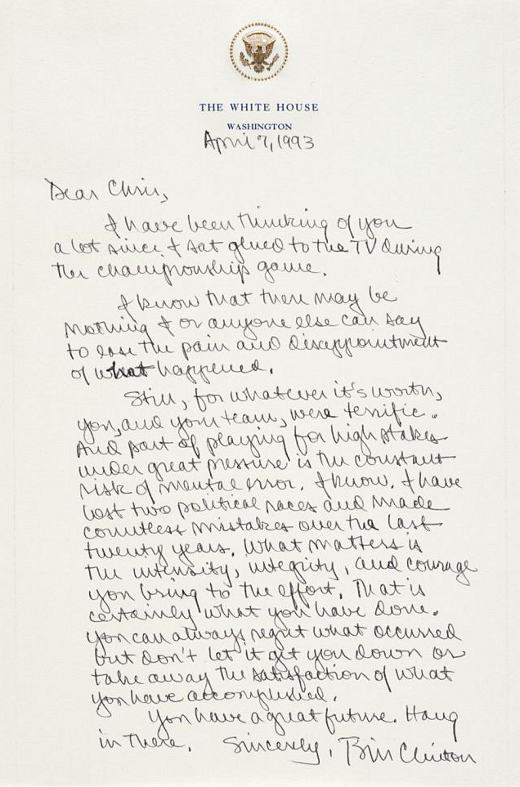 THE WHITE HOUSE
WASHINGTON
April 7, 1993
Dear Chris,
I have been thinking of you
a lot since I sat glued to the TV during
the championship game.
I know that there may be
nothing I or anyone else can say
to ease the pain and disappointment
of what happened.
Still, for whatever it's worth,
you, and your team, were terrific.
And part of playing for high stakes
under great pressure is the constant
risk of mental error. I know. I have
lost two political races and made
countless mistakes over the last
twenty years. What matters is
the intensity, integrity, and courage
you bring to the effort. That is
certainly what you have done.
You can always regret what occurred
but don't let it get you down or
take away the satisfaction of what
you have accomplished.
You have a great future. Hang
in there. Sincerely, Bill Clinton